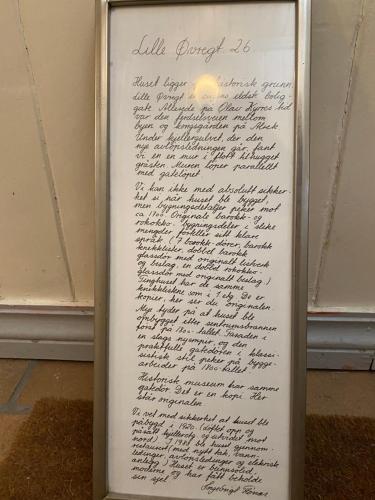 Lille Øvregt 26.
Huset ligger på historisk grunn,
Lille Øvregt er byens eldste bolig-
gate. Allerede på Olav Kyrres tid
var den ferdselsveien mellom
byen og kongsgården på Alrek.
Under kjellergulvet, der den
nye avløpsledningen går, fant
vi en en mur i flott tilhugget
gråsten. Muren løper parallelt
med gateløpet.
Vi kan ikke med absolutt sikker-
het si når huset ble bygget,
men bygningsdetaljer peker mot
ca 1700. Originale barokk- og
rokokko- bygningsdeler i slike
mengder forteller sitt klare
språk. (7 barokk-dører, barokk
knekklister, dobbel barokk
glassdør med originalt
og beslag, en dobbel rokokko-
glassdør med originalt beslag.)
Tinghuset har de samme
knekklistene som i 1.etg. De er
kopier, her ser du originalen.
Mye tyder på at huset ble
ombygget etter sentrumsbrannen
først på 1800-tallet. Fasaden i
en slags nyempir, og den
praktfulle gatedøren i klassi-
sistisk stil peker på bygge-
arbeider på 1800-tallet.
Historisk museum har samme
gatedør. Det er en kopi. Her
står originalen.
Vi vet med sikkerhet at huset ble
påbygd i 1920. (løftet opp og
påsatt kjelleretg. og utvidet mot
nord) I 1988 ble huset gjennom-
restaurert (med nytt tak, vann-
ledninger, avløpsledninger og elektrisk
anlegg.) Huset er
moderne og har fått beholde
sin sjel.